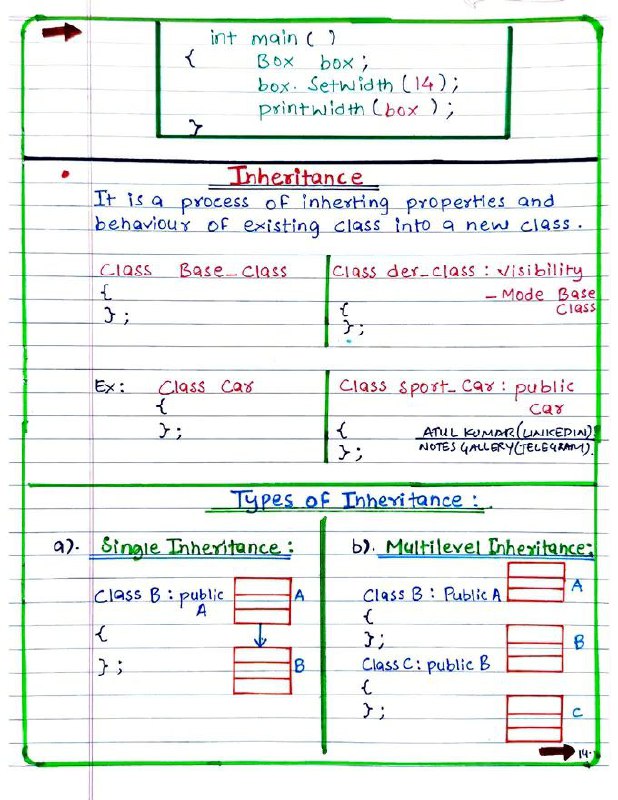 int main ( )
{ Box box ;
box. Setwidth (14) ;
printwidth (box ) ;
}
Inheritance
It is a process of inherting properties and
behaviour of existing class into a new class .
Class Base_class
{
} ;
Class der_class : visibility
- Mode Base
Class
{
} ;
Ex : Class Car
{
} ;
Class sport_Car : public
Car
{
} ;
ATUL KUMAR (LINKEDIN)
NOTES GALLERY (TELEGRAM).
Types of Inheritance :
a). Single Inheritance :
Class B : public
A
{
} ;
A
B
b). Multilevel Inheritance:
Class B : Public A
{
} ;
Class C : public B
{
} ;
A
B
C
14.